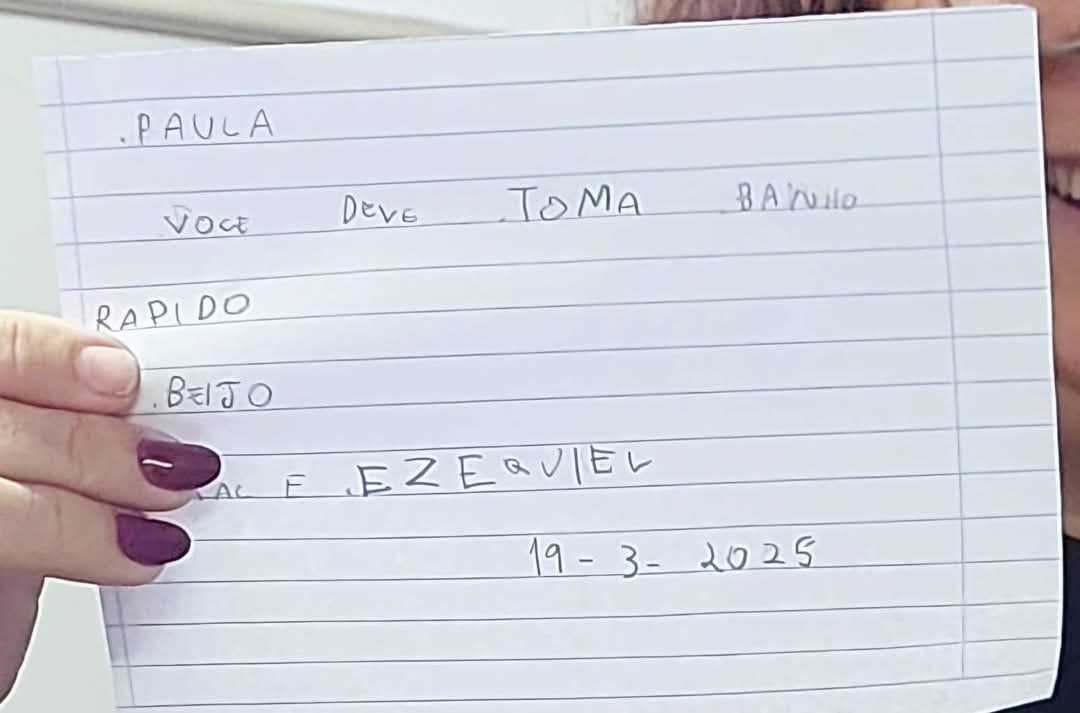 .PAULA
VOCE DEVE .TOMA BANHO
RAPIDO
.BEIJO
E .EZEQUIEL
19-3-2025